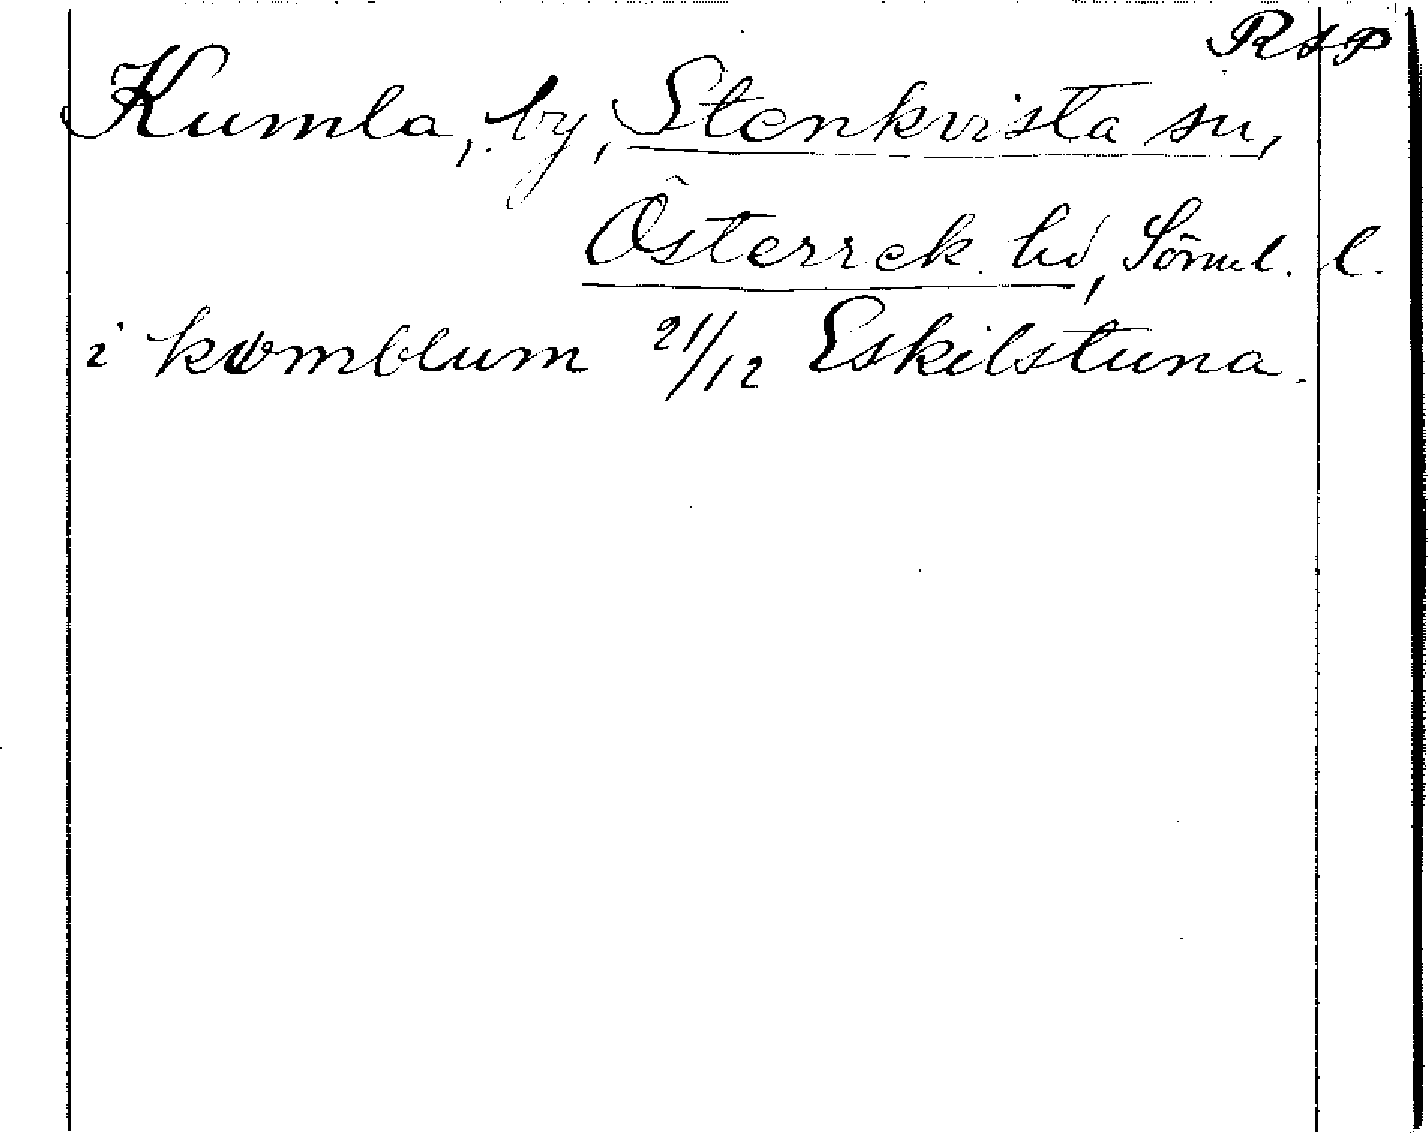 RAP
Kumla, by, Stenkvista sn,
Österrek. hd, Söml. l.
i komblum 21/12 Eskilstuna.